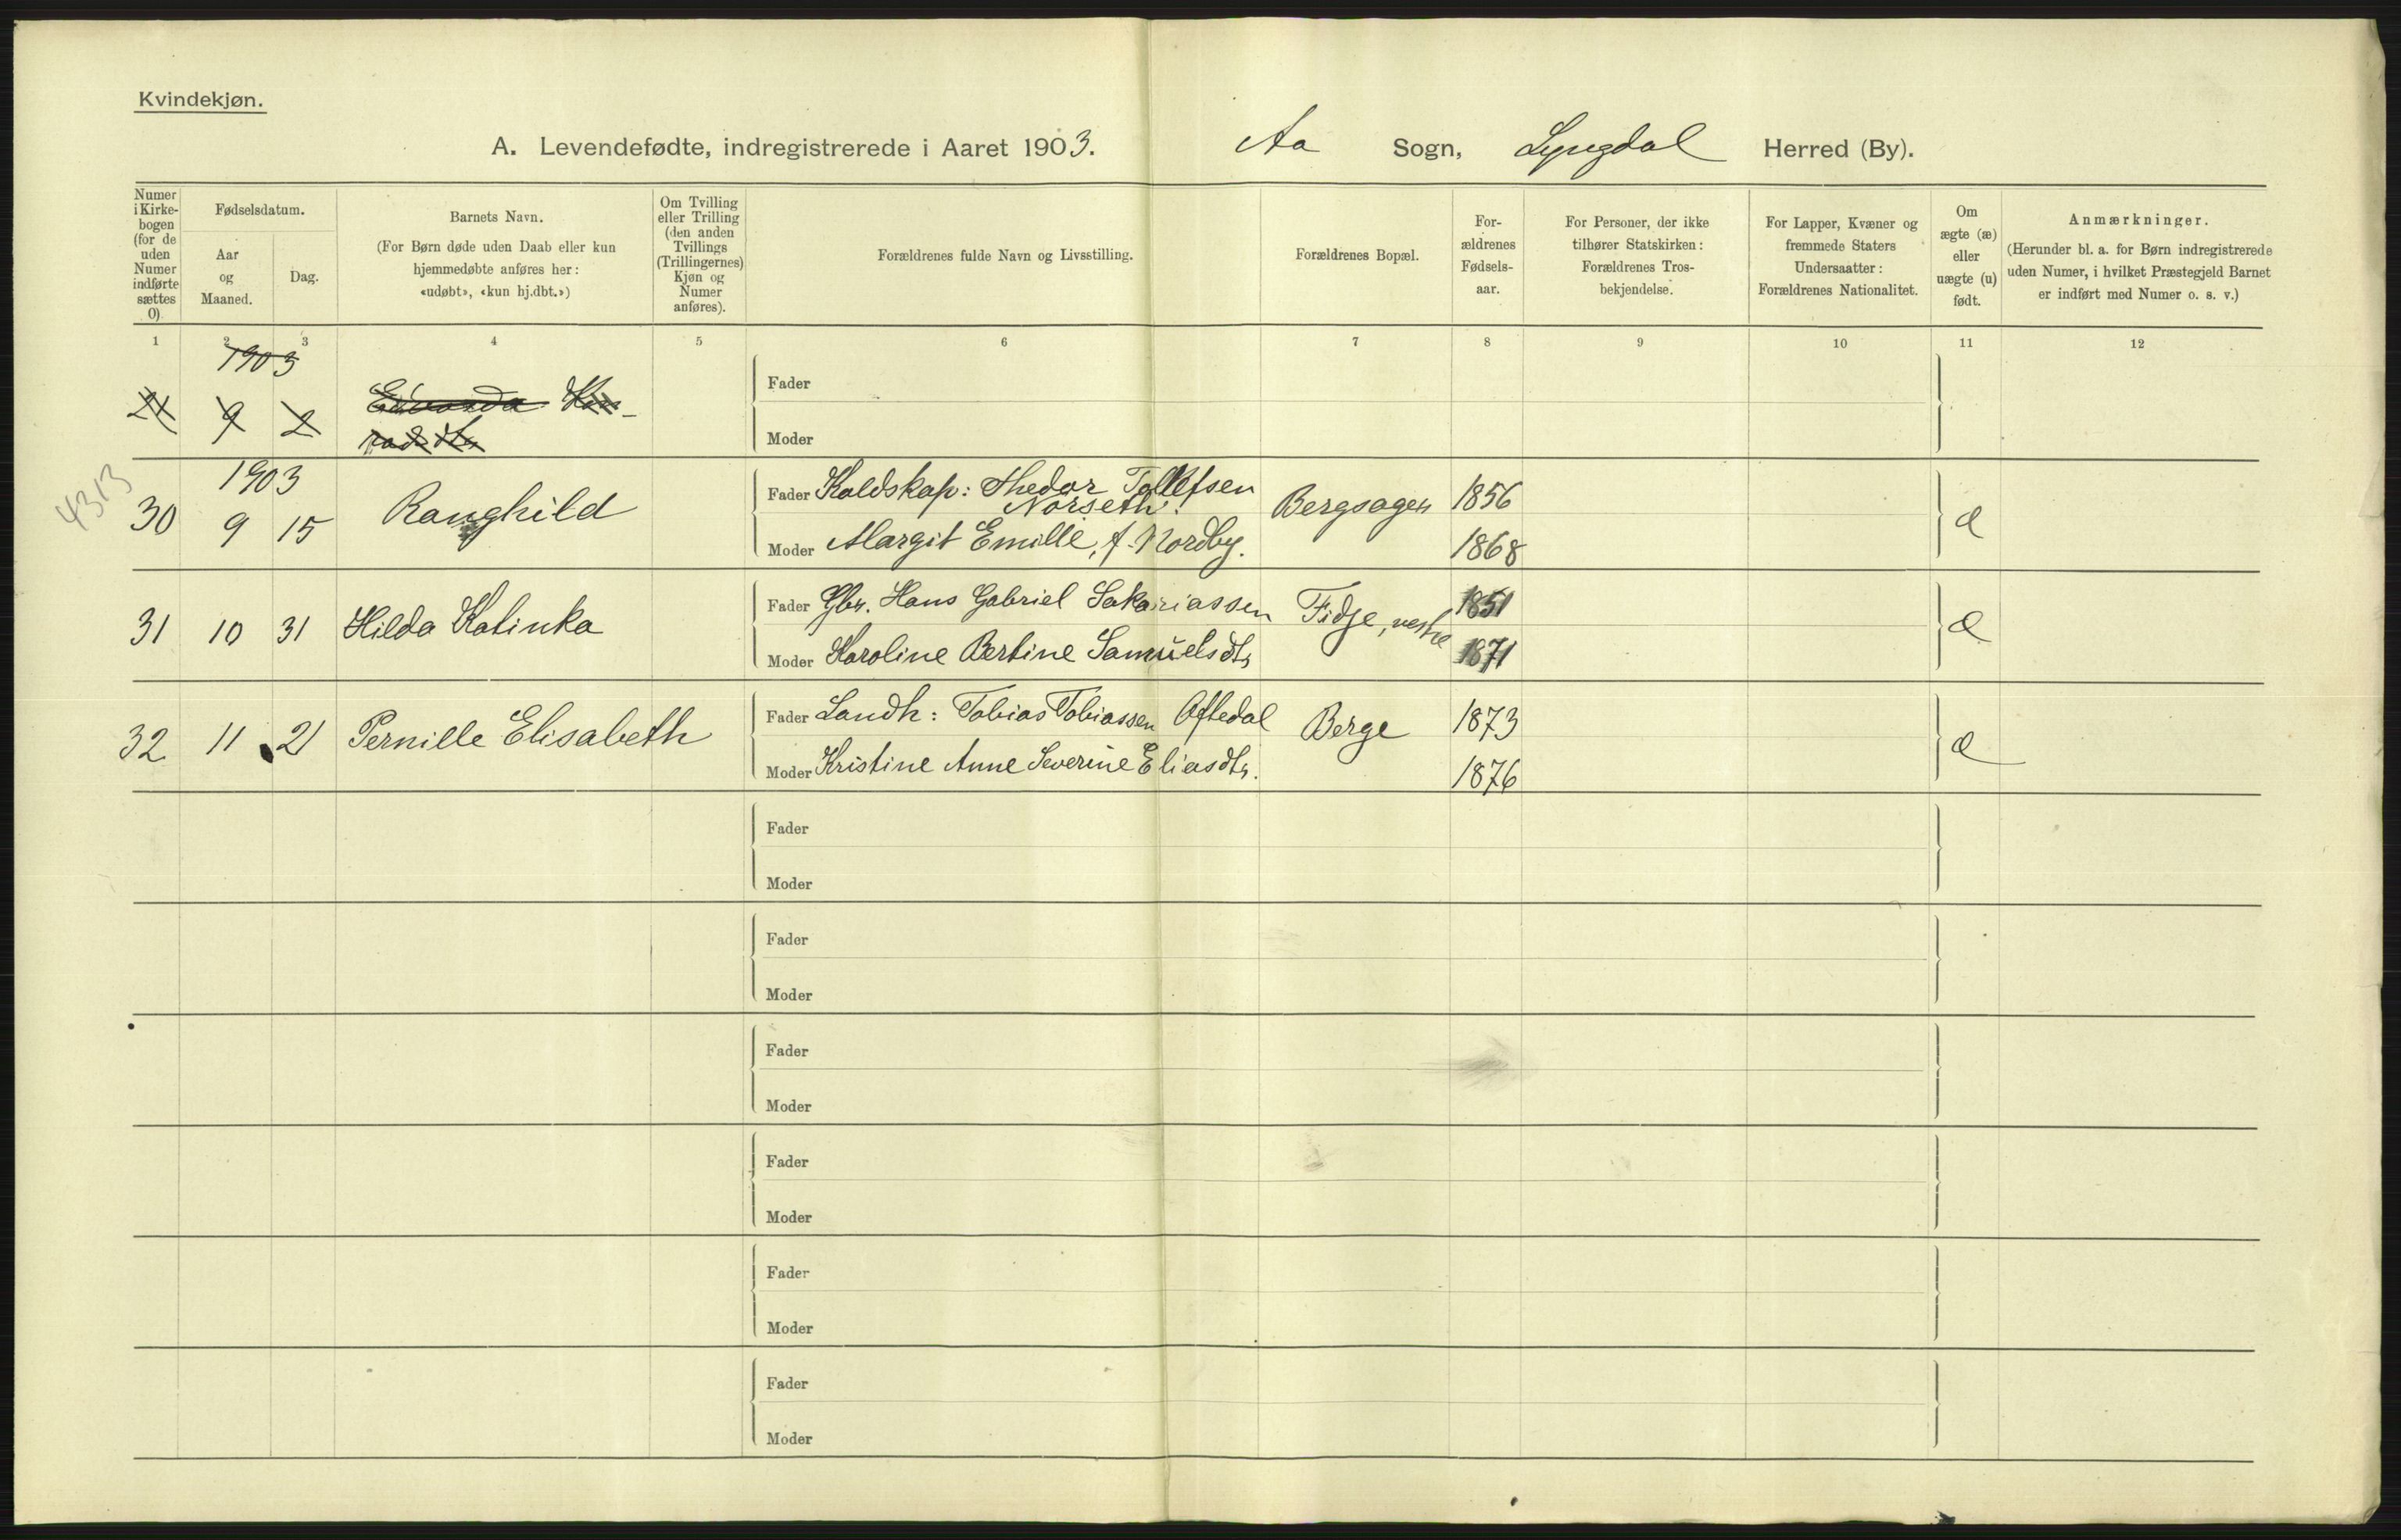 Kvindekjøn.
A. Levendefødte, indregistrerede i Aaret 1903. Aa Sogn, Lyngdal Herred (By).
Numer i Kirke-bogen (for de uden Numer indførte sættes 0)
Fødselsdatum.
Aar og Maaned.
Dag.
Barnets Navn.
(For Børn døde uden Daab eller kun
hjemmedøbte anføres her:
«udøbt», «kun hj.dbt.»)
Om Tvilling
eller Trilling
(den anden
Tvillings
(Trillingernes)
Kjøn og
Numer
anføres).
Forældrenes fulde Navn og Livsstilling.
Forældrenes Bopæl.
For-
ældrenes
Fødsels-
aar.
For Personer, der ikke
tilhører Statskirken:
Forældrenes Tros-
bekjendelse.
For Lapper, Kvæner og
fremmede Staters
Undersaatter:
Forældrenes Nationalitet.
Om
ægte (æ)
eller
uægte (u)
født.
Anmærkninger.
(Herunder bl. a. for Børn indregistrerede
uden Numer, i hvilket Præstegjeld Barnet
er indført med Numer o. s. v.)
1 2 3 4 5 6 7 8 9 10 11 12
1903
9 2
Fader
Moder
4313
1903
30 9 15 Ranghild
Fader Koldskap: Thedor Tallefsen
Nörseth. Bergsagen 1856
Moder Margit Emilie, f. Nordby. 1868
æ
31 10 31 Hilda Katinka
Fader Gbr. Hans Gabriel Sakariassen Fidje, vestre 1851
Moder Karoline Bertine Samuelsdtr 1871
æ
32 11 21 Pernille Elisabeth
Fader Landh: Tobias Tobiassen Oftedal Berge 1873
Moder Kristine Anne Severine Eliasdtr. 1876
æ
Fader
Moder
Fader
Moder
Fader
Moder
Fader
Moder
Fader
Moder
Fader
Moder